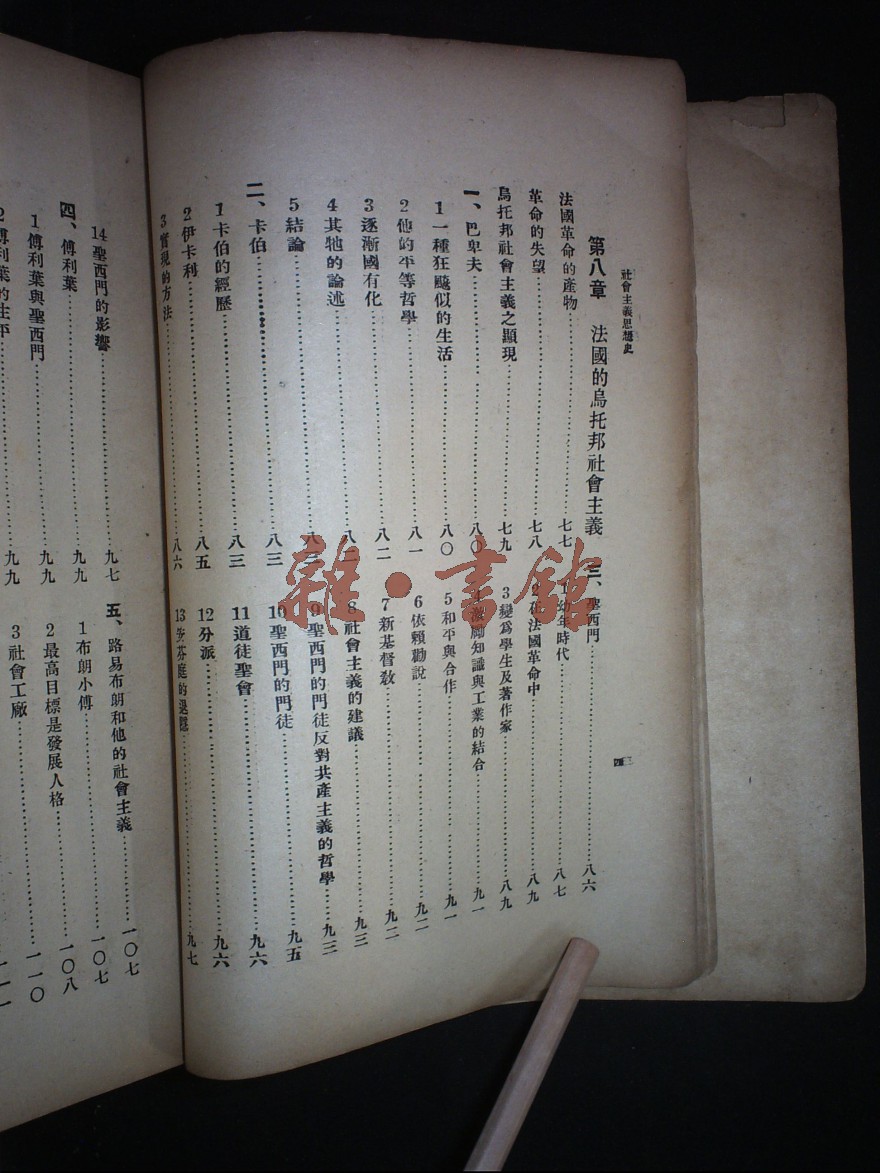 社會主義思想史
第八章　法國的烏托邦社會主義
法國革命的產物……七七
革命的失望……七八
烏托邦社會主義之顯現……七九
一、巴卑夫……八〇
1 一種狂飈似的生活……八〇
2 他的平等哲學……八一
3 逐漸國有化……八二
4 其牠的論述……八二
5 結論……八三
二、卡伯……八三
1 卡伯的經歷……八三
2 伊卡利……八五
3 實現的方法……八六
三、聖西門……八六
1 幼年時代……八七
2 在法國革命中……八九
3 變爲學生及著作家……八九
4 激勵知識與工業的結合……九一
5 和平與合作……九一
6 依賴勸說……九二
7 新基督教……九二
8 社會主義的建議……九三
9 聖西門的門徒反對共產主義的哲學……九三
10 聖西門的門徒……九五
11 道徒聖會……九六
12 分派……九六
13 安芬庭的退隱……九七
14 聖西門的影響……九七
四、傅利葉……九九
1 傅利葉與聖西門……九九
2 傅利葉的生平……九九
五、路易布朗和他的社會主義……一〇七
1 布朗小傳……一〇七
2 最高目標是發展人格……一〇八
3 社會工廠……一一〇
雜·書館